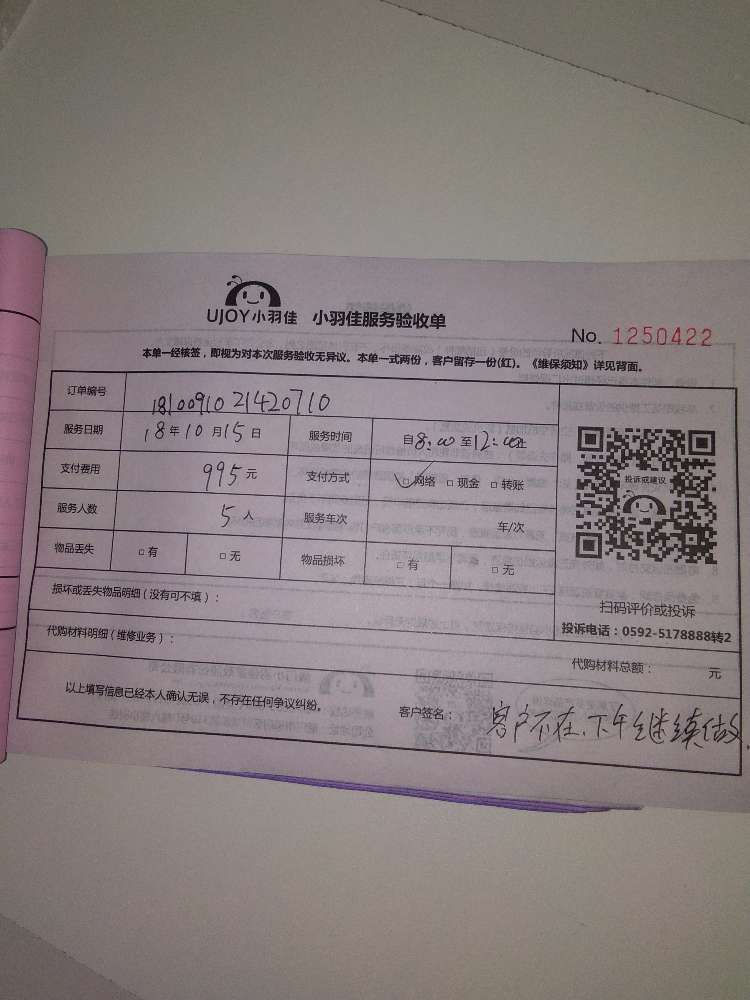 UJOY小羽佳 小羽佳服务验收单
No. 1250422
本单一经核签，即视为对本次服务验收无异议。本单一式两份，客户留存一份(红)。《维保须知》详见背面。
订单编号 1810091021420710
服务日期 18年10月15日 服务时间 自8:00至12:00止
支付费用 995元 支付方式 ☑网络 □现金 □转账
服务人数 5人 服务车次 年/次
物品丢失 □有 □无 物品损坏 □有 □无
投诉或建议
扫码评价或投诉
投诉电话：0592-5178888转2
损坏或丢失物品明细(没有可不填)：
代购材料明细(维修业务)： 代购材料总额： 元
以上填写信息已经本人确认无误，不存在任何争议纠纷。 客户签名： 客户不在.下午继续做.